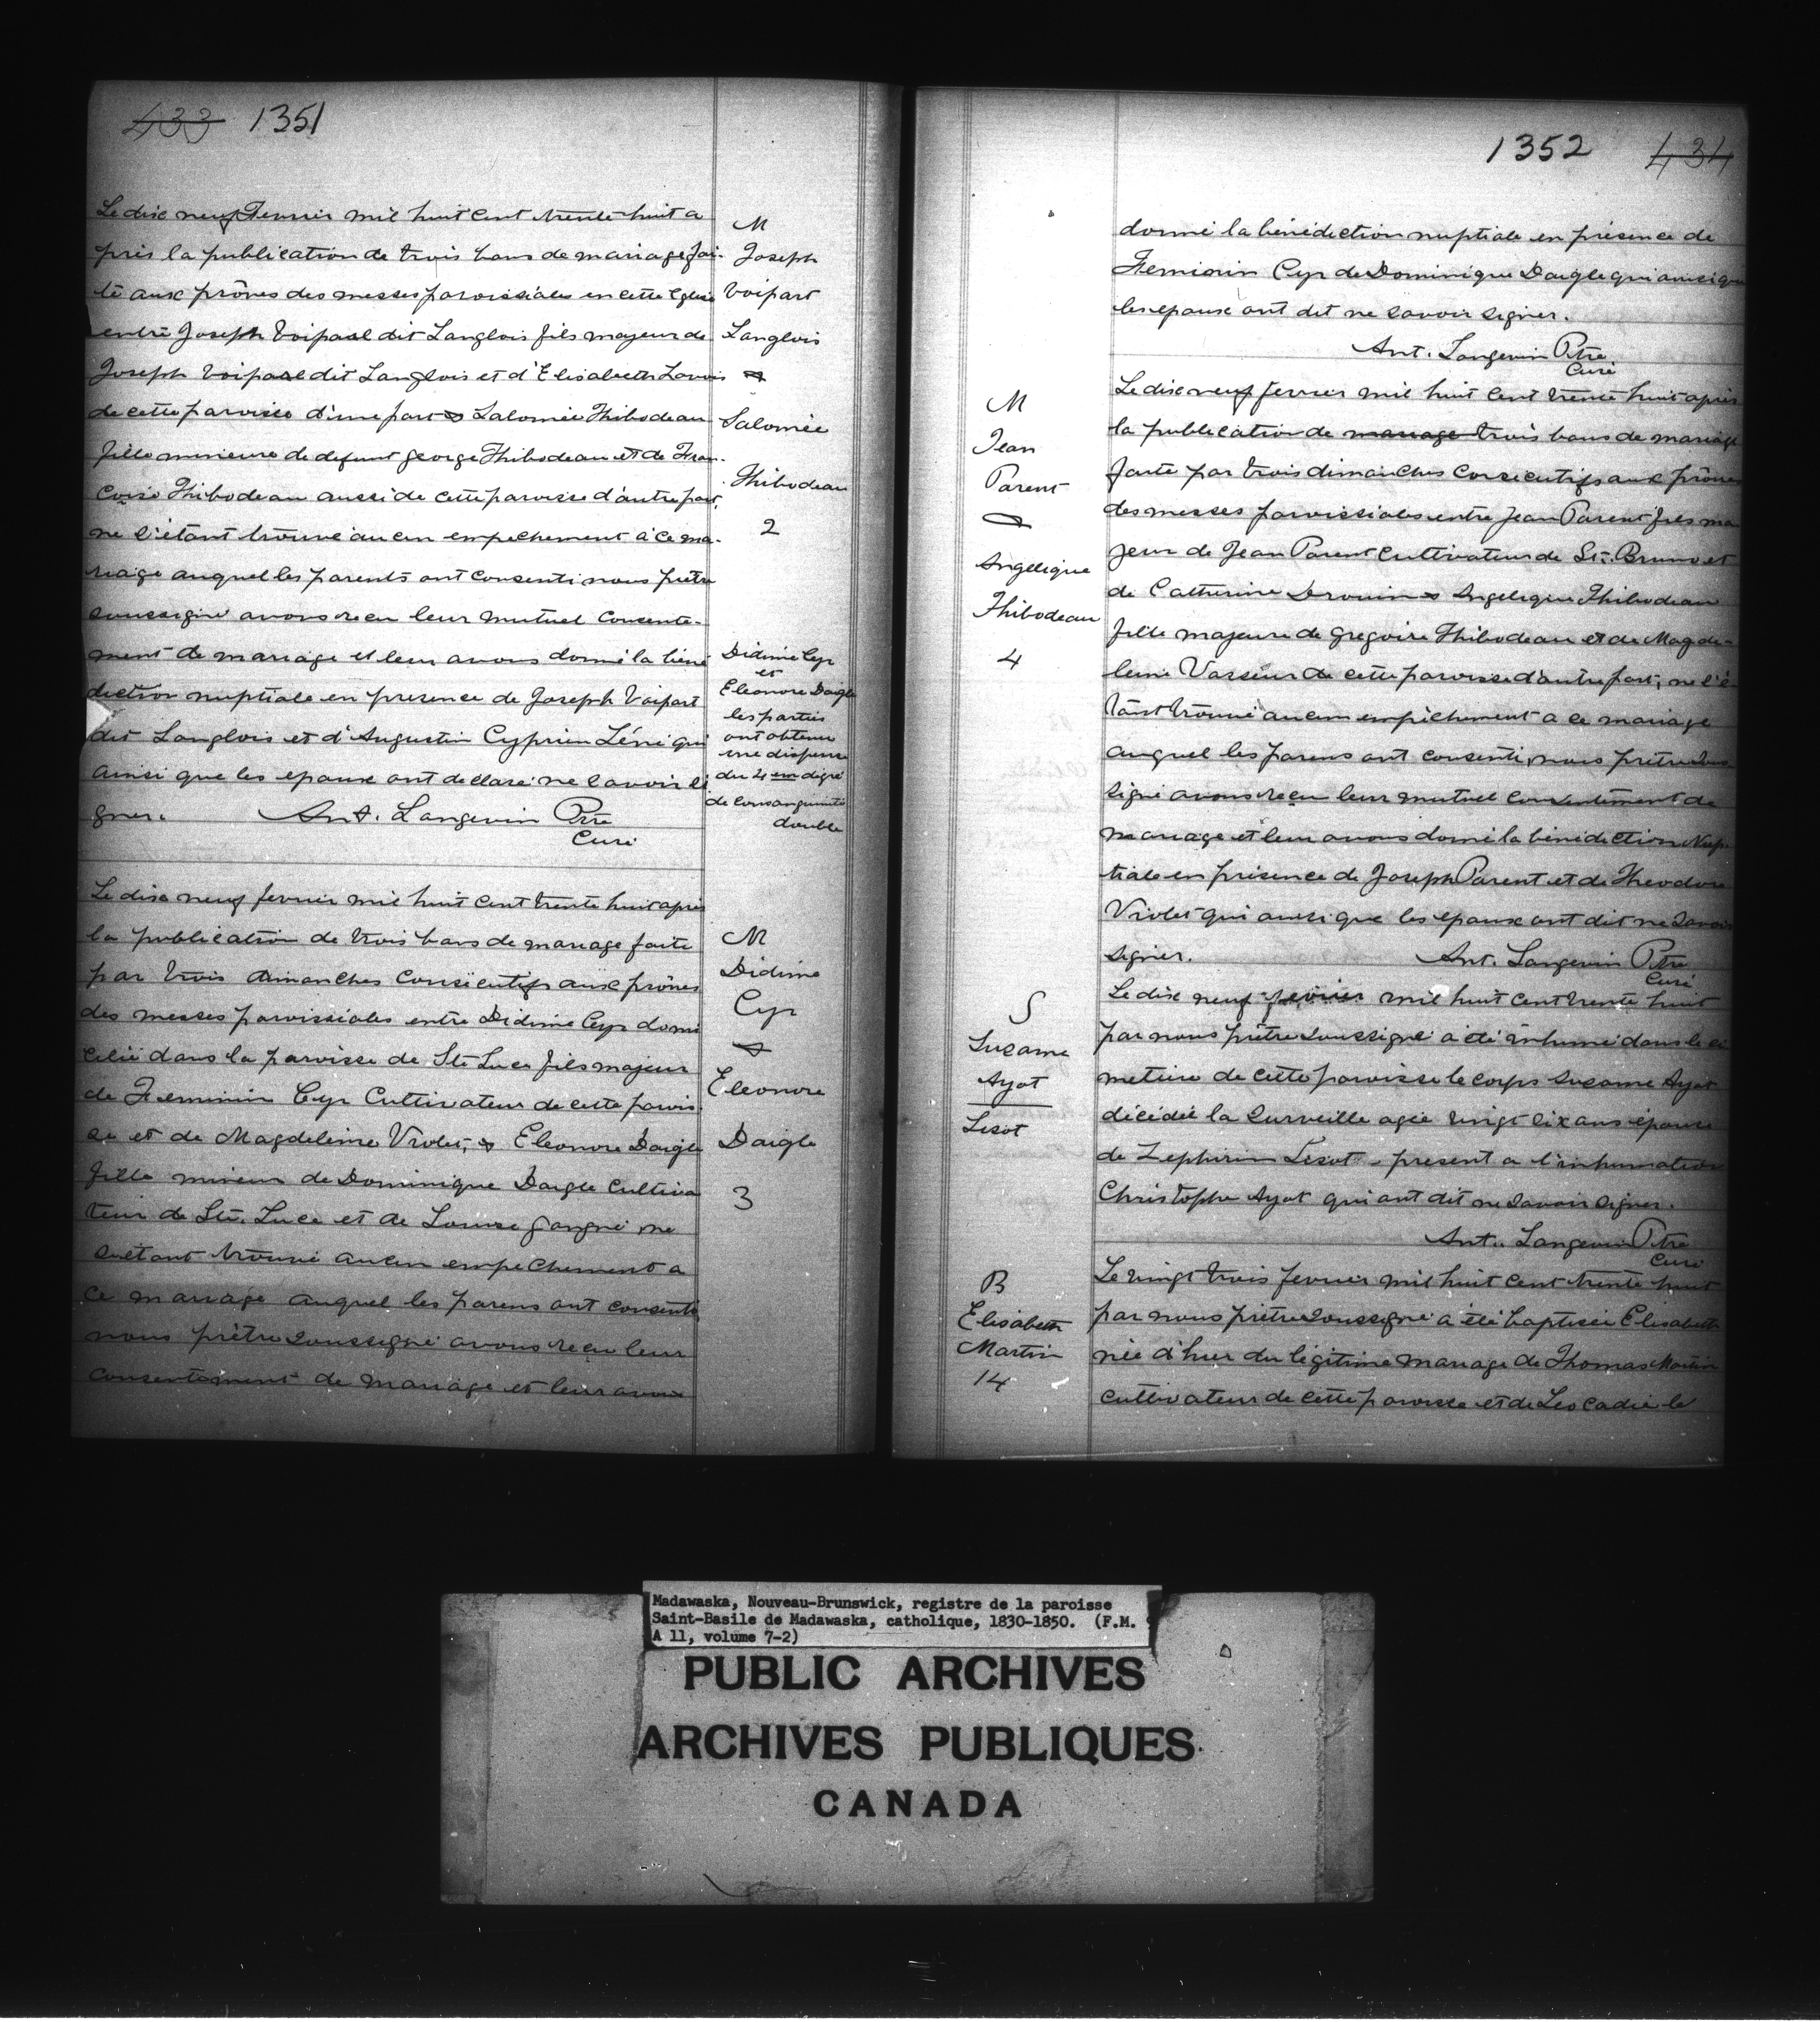 433 1351
Le dix neuf Fevrier mil huit cent trente huit a
près la publication de trois bans de mariage fai-
te aux prônes des messes paroissiales en cette Eglise
entre Joseph Voipart dit Langlois fils majeur de
Joseph Voipart dit Langlois et d'Elisabeth Lavois
de cette paroisse d'une part & Salomée Thibodeau
fille mineure de defunt george Thibodeau et de Fran-
coise Thibodeau aussi de cette paroisse d'autre part,
ne s'étant trouvé aucun empechement à ce ma-
riage auquel les parents ont consenti nous prêtre
soussigné avons recu leur mutuel consente-
ment de mariage et leur avons donné la béné
diction nuptiale en presence de Joseph Voipart
dit Langlois et d'Augustin Cyprien Léné qui
ainsi que les epoux ont declaré ne savoir si
gner. Ant. Langevin Ptre
Curé
M
Joseph
Voipart
Langlois
&
Salomée
Thibodeau
2
Didime Cyr
et
Eleonore Daigle
les parties
ont obtenu
une dispense
du 4 em degré
de consanguinité
double
Le dix neuf fevrier mil huit cent trente huit après
la publication de trois bans de mariage faite
par trois dimanches consécutifs aux prônes
des messes paroissiales entre Didime Cyr domi
cilié dans la paroisse de Ste Luce fils majeur
de Fierminin Cyr Cultivateur de cette parois
se et de Magdeleine Violet, & Eleonore Daigle
fille mineur de Dominique Daigle Cultiva
teur de Ste. Luce et de Louise gangné, ne
setant trouvé aucun empechement a
ce mariage auquel les parens ont consenti
nous prêtre soussigné avons reçu leur
consentement de mariage et leur avons
M
Didime
Cyr
&
Eleonore
Daigle
3
1352 434
donné la bénédiction nuptiale en présence de
Firminin Cyr de Dominique Daigle qui ainsi que
les epoux ont dit ne savoir signer.
Ant. Langevin Ptre.
Curé
M
Jean
Parent
&
Angelique
Thibodeau
4
Le dix neuf fevrier mil huit cent trente huit après
la publication de mariage trois bans de mariage
faite par trois dimanches consecutifs aux prônes
des messes paroissiales entre Jean Parent fils ma
jeur de Jean Parent Cultivateur de St. Bruno et
de Catherine Drouin & Angelique Thibodeau
fille majeure de gregoire Thibodeau et de Magde-
leine Vasseur de cette paroisse d'autre part; ne s'é
tant trouvé aucun empêchement a ce mariage
auquel les parens ont consenti, nous prêtre sous
signé avons reçu leur mutuel consentement de
mariage et leur avons donné la bénédiction Nup-
tiale en présence de Joseph Parent et de Theodore
Violet qui ainsi que les epoux ont dit ne savoir
signer. Ant. Langevin Ptre
Curé
S
Suzanne
Ayot
Lizot
Le dix neuf fevrier mil huit cent trente huit
par nous prêtre soussigné a été inhumé dans le ci
metière de cette paroisse le corps Suzanne Ayot
décédée la surveille agée vingt six ans épouse
de Zephirin Lizot - present a l'inhumation
Christophe Ayot qui ont dit ne savoir signer.
Ant. Langevin Ptre
Curé
B
Elisabeth
Martin
14
Le vingt trois fevrier mil huit cent trente huit
par nous prêtre soussigné a été baptisée Elisabeth
née d'hier du légitime mariage de Thomas Martin
cultivateur de cette paroisse et de Leocadie le
Madawaska, Nouveau-Brunswick, registre de la paroisse
Saint-Basile de Madawaska, catholique, 1830-1850. (F.M. 9
A 11, volume 7-2)
PUBLIC ARCHIVES
ARCHIVES PUBLIQUES
CANADA